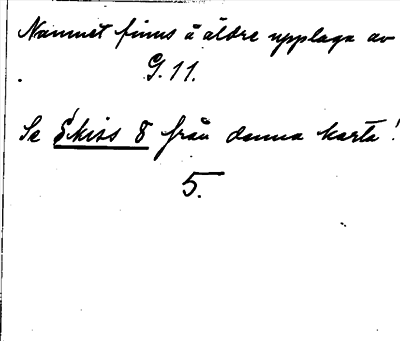 Namnet finns å äldre upplaga av
G.11.
Se Skiss 8 från denna karta!
5.